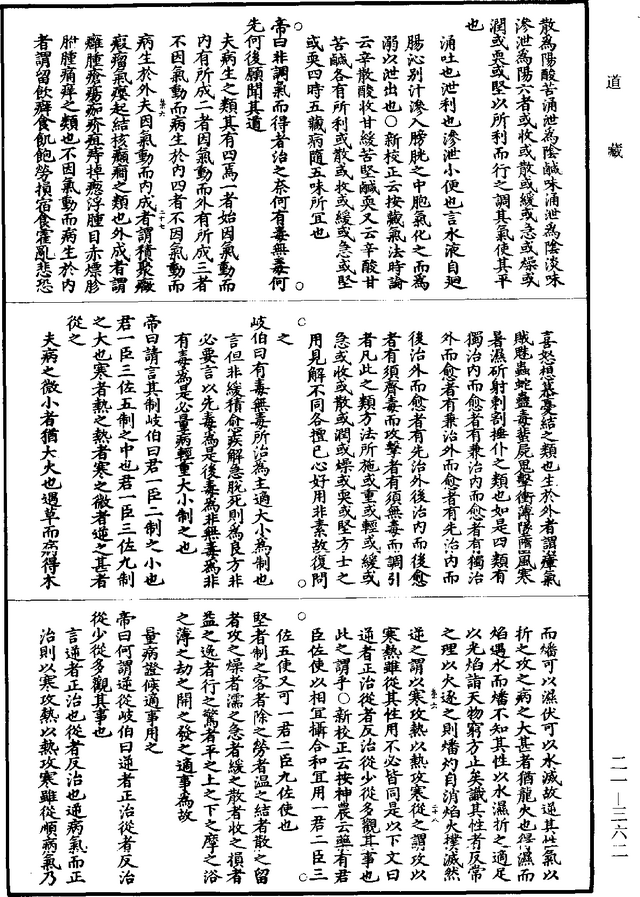 道藏
散爲陽酸苦涌泄爲陰鹹味涌泄爲陰淡味
滲泄爲陽六者或收或散或緩或急或燥或
潤或耎或堅以所利而行之調其氣使其平
也
涌吐也泄利也滲泄小便也言水液自迴
腸泌別汁滲入膀胱之中胞氣化之而爲
溺以泄出也○新校正云按藏氣法時論
云辛散酸收甘緩苦堅鹹耎又云辛酸甘
苦鹹各有所利或散或收或緩或急或堅
或耎四時五藏病隨五味所宜也
帝曰非調氣而得者治之奈何有毒無毒何
先何後願聞其道
夫病生之類其有四焉一者始因氣動而
内有所成二者因氣動而外有所成三者
不因氣動而病生於内四者不因氣動而
病生於外夫因氣動而内成者謂積聚癥
瘕瘤氣癭起結核癲癇之類也外成者謂
癰腫瘡瘍痂疥疽痔掉瘛浮腫目赤熛胗
胕腫痛痒之類也不因氣動而病生於内
者謂留飲癖食飢飽勞損宿食霍亂悲恐
喜怒想慕憂結之類也生於外者謂瘴氣
賊魅蟲蛇蠱毒蜚屍鬼擊衝薄墜墮風寒
暑濕斫射刺割捶仆之類也如是四類有
獨治内而愈者有兼治内而愈者有獨治
外而愈者有兼治外而愈者有先治内而
後治外而愈者有先治外後治内而後愈
者有須齊毒而攻擊者有須無毒而調引
者凡此之類方法所施或重或輕或緩或
急或收或散或潤或燥或耎或堅方士之
用見解不同各擅已心好用非素故復問
之
岐伯曰有毒無毒所治爲主適大小爲制也
言但能緩積愈疾解急脫死則爲良方非
必要言以先毒爲是後毒爲非無毒爲非
有毒爲是必量病輕重大小制之也
帝曰請言其制岐伯曰君一臣二制之小也
君一臣三佐五制之中也君一臣三佐九制
之大也寒者熱之熱者寒之微者逆之甚者
從之
夫病之微小者猶大火也遇草而焫得木
而燔可以濕伏可以水滅故逆其性氣以
折之攻之病之大甚者猶龍火也得濕而
焰遇水而燔不知其性以水濕折之適足
以光焰詣天物窮方止矣識其性者反常
之理以火逐之則燔灼自消焰火撲滅然
逆之謂以寒攻熱以熱攻寒從之謂攻以
寒熱雖從其性用不必皆同是以下文曰
逆者正治從者反治從少從多觀其事也
此之謂乎○新校正云按神農云藥有君
臣佐使以相宜攝合和宜用一君二臣三
佐五使又可一君二臣九佐使也
堅者制之客者除之勞者温之結者散之留
者攻之燥者濡之急者緩之散者收之損者
益之逸者行之驚者平之上之下之摩之浴
之薄之劫之開之發之適事爲故
量病證候適事用之
帝曰何謂逆從岐伯曰逆者正治從者反治
從少從多觀其事也
言逆者正治也從者反治也逆病氣而正
治則以寒攻熱以熱攻寒雖從順病氣乃
二一—三六二